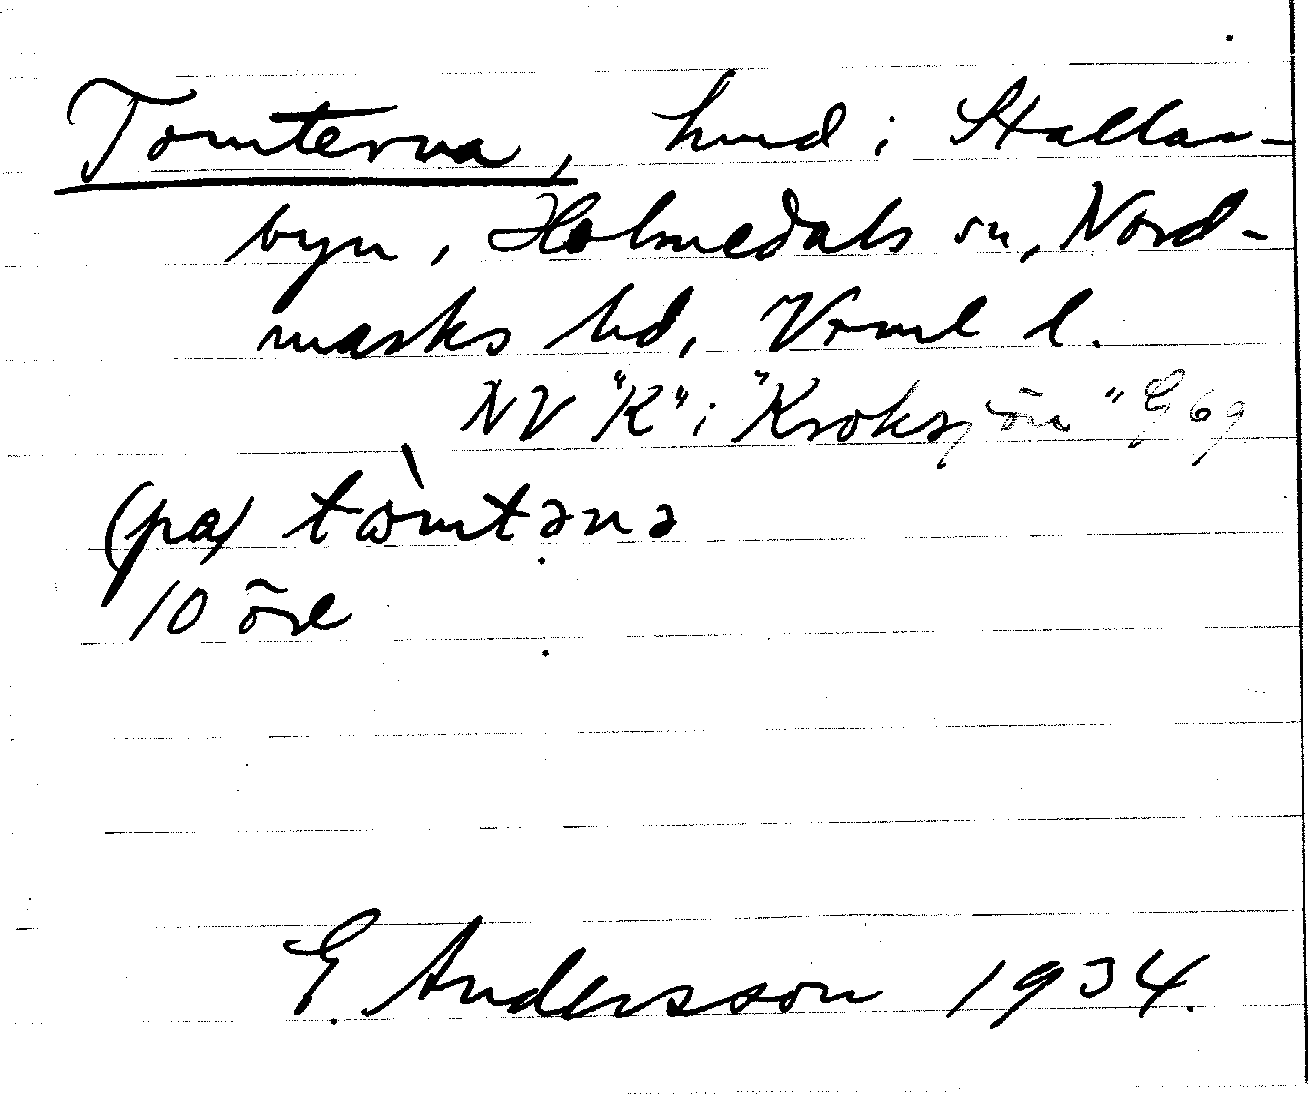 Tomterna, hmd i Stallar-
byn, Holmedals sn, Nord-
marks hd, Vrml l.
NV "K" i "Kroksjön" Eg 69
(pa) tὼmtənə
10 öre
E. Andersson 1934.